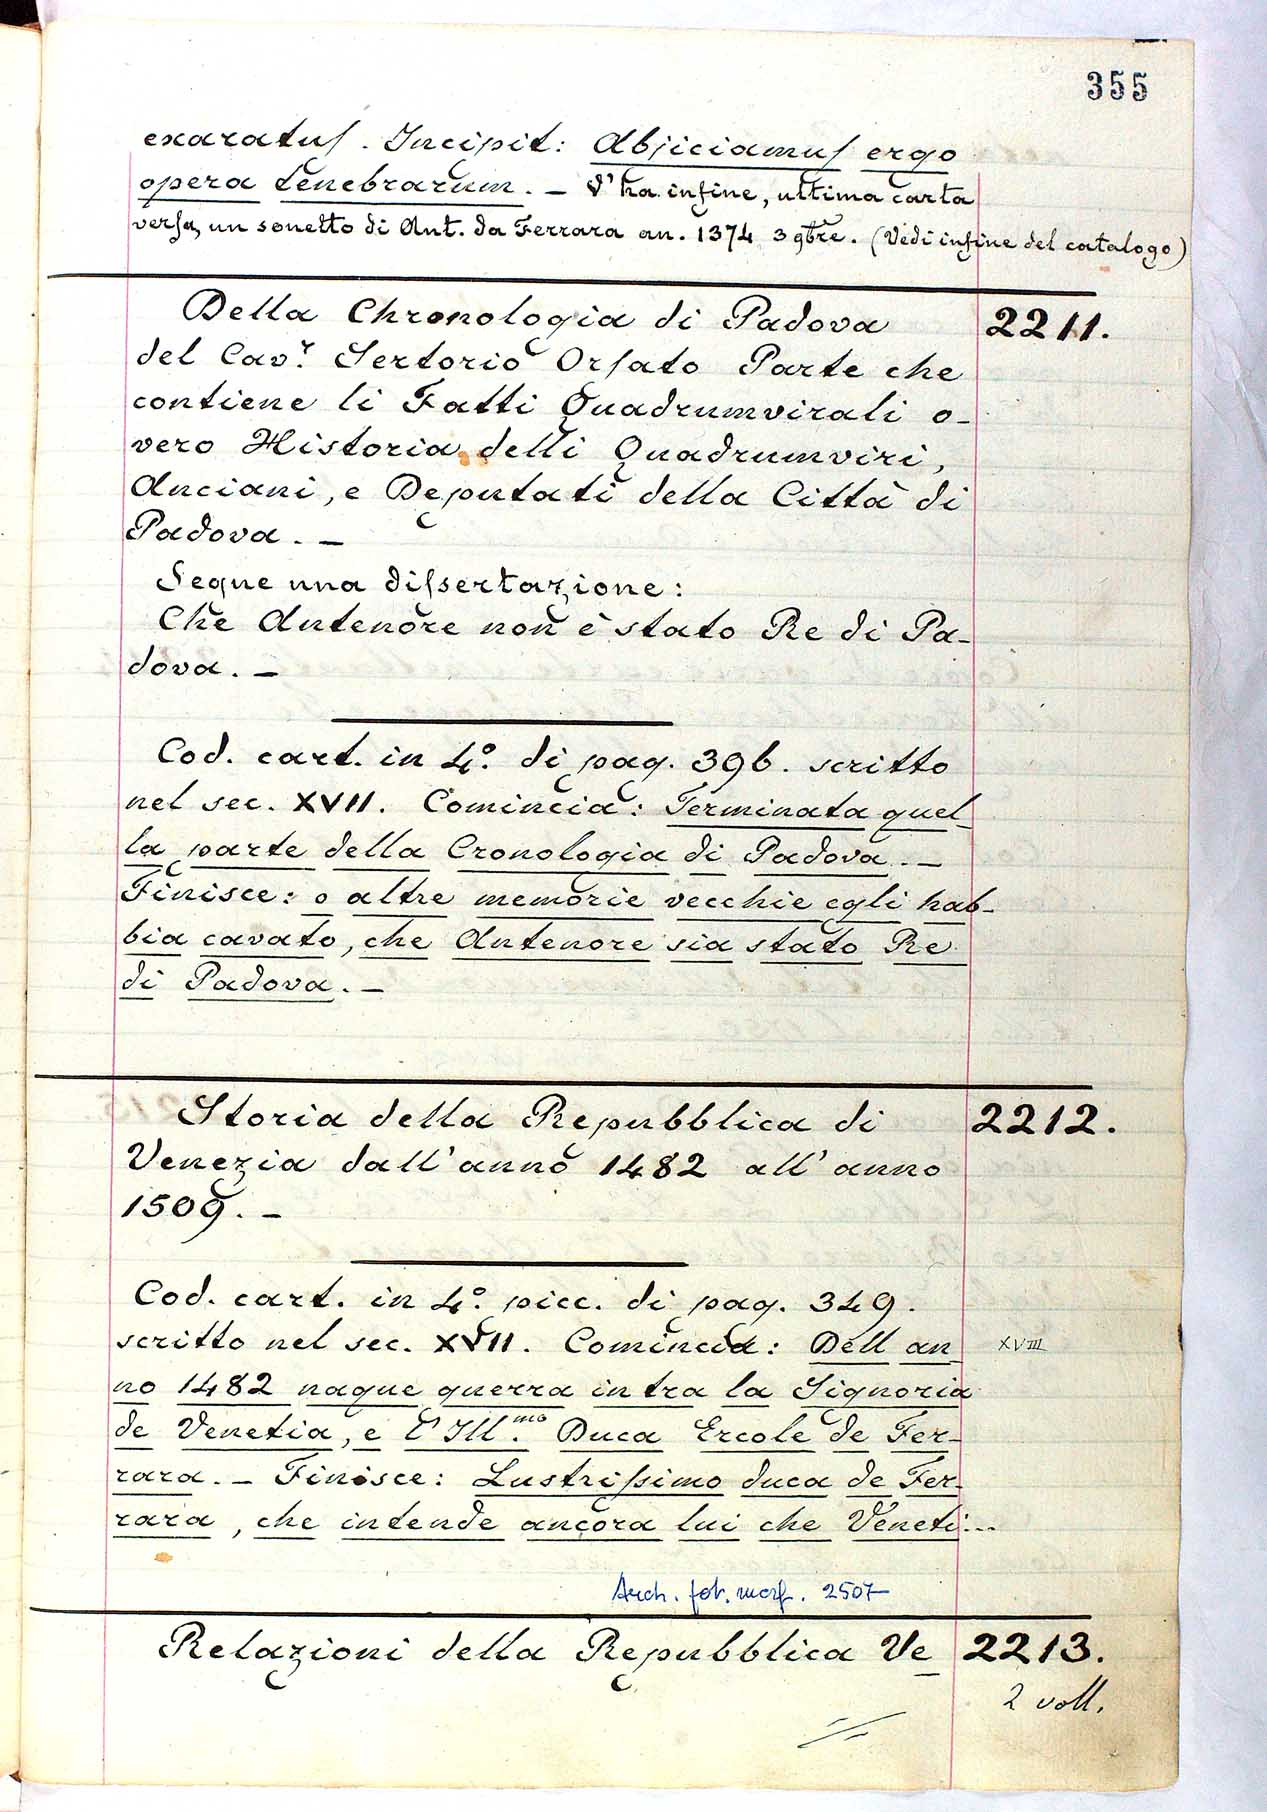 355
exaratuſ. Incipit: Abjiciamuſ ergo
opera tenebrarum. — V'ha infine, ultima carta
verſa, un sonetto di Ant. da Ferrara an. 1374 3 9bre. (Vedi infine del catalogo)
Della Chronologia di Padova 2211.
del Cavʳ. Sertorio Orſato Parte che
contiene li Fatti Quadrumvirali o-
vero Historia delli Quadrumviri,
Anciani, e Deputati della Città di
Padova. —
Segue una diſsertazione:
Che Antenore non è stato Re di Pa-
dova. —
Cod. cart. in 4°. di pag. 396. scritto
nel sec. XVII. Comincia: Terminata quel-
la parte della Cronologia di Padova. —
Finisce: o altre memorie vecchie egli hab-
bia cavato, che Antenore sia stato Re
di Padova. —
Storia della Repubblica di 2212.
Venezia dall'anno 1482 all'anno
1509. —
Cod. cart. in 4°. picc. di pag. 349.
scritto nel sec. XVII. Comincia: Dell an XVIII
no 1482 naque guerra in tra la Signoria
de Venetia, e l'Ill.ᵐᵒ Duca Ercole de Fer-
rara. — Finisce: Lustriſsimo duca de Fer-
rara, che intende ancora lui che Veneti...
Arch. fot. marc. 2507
Relazioni della Repubblica Ve 2213.
2 voll.